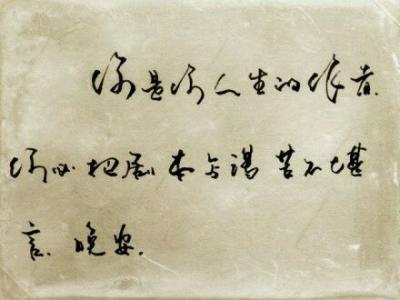 你是你人生的作者.
何必把剧本写得苦不堪
言.晚安.